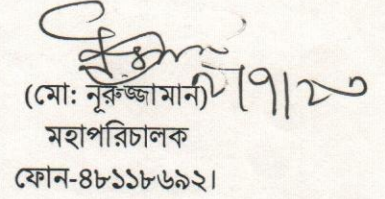 (মো: নূরুজ্জামান)
মহাপরিচালক
ফোন-৪৮১১৮৬৯২।